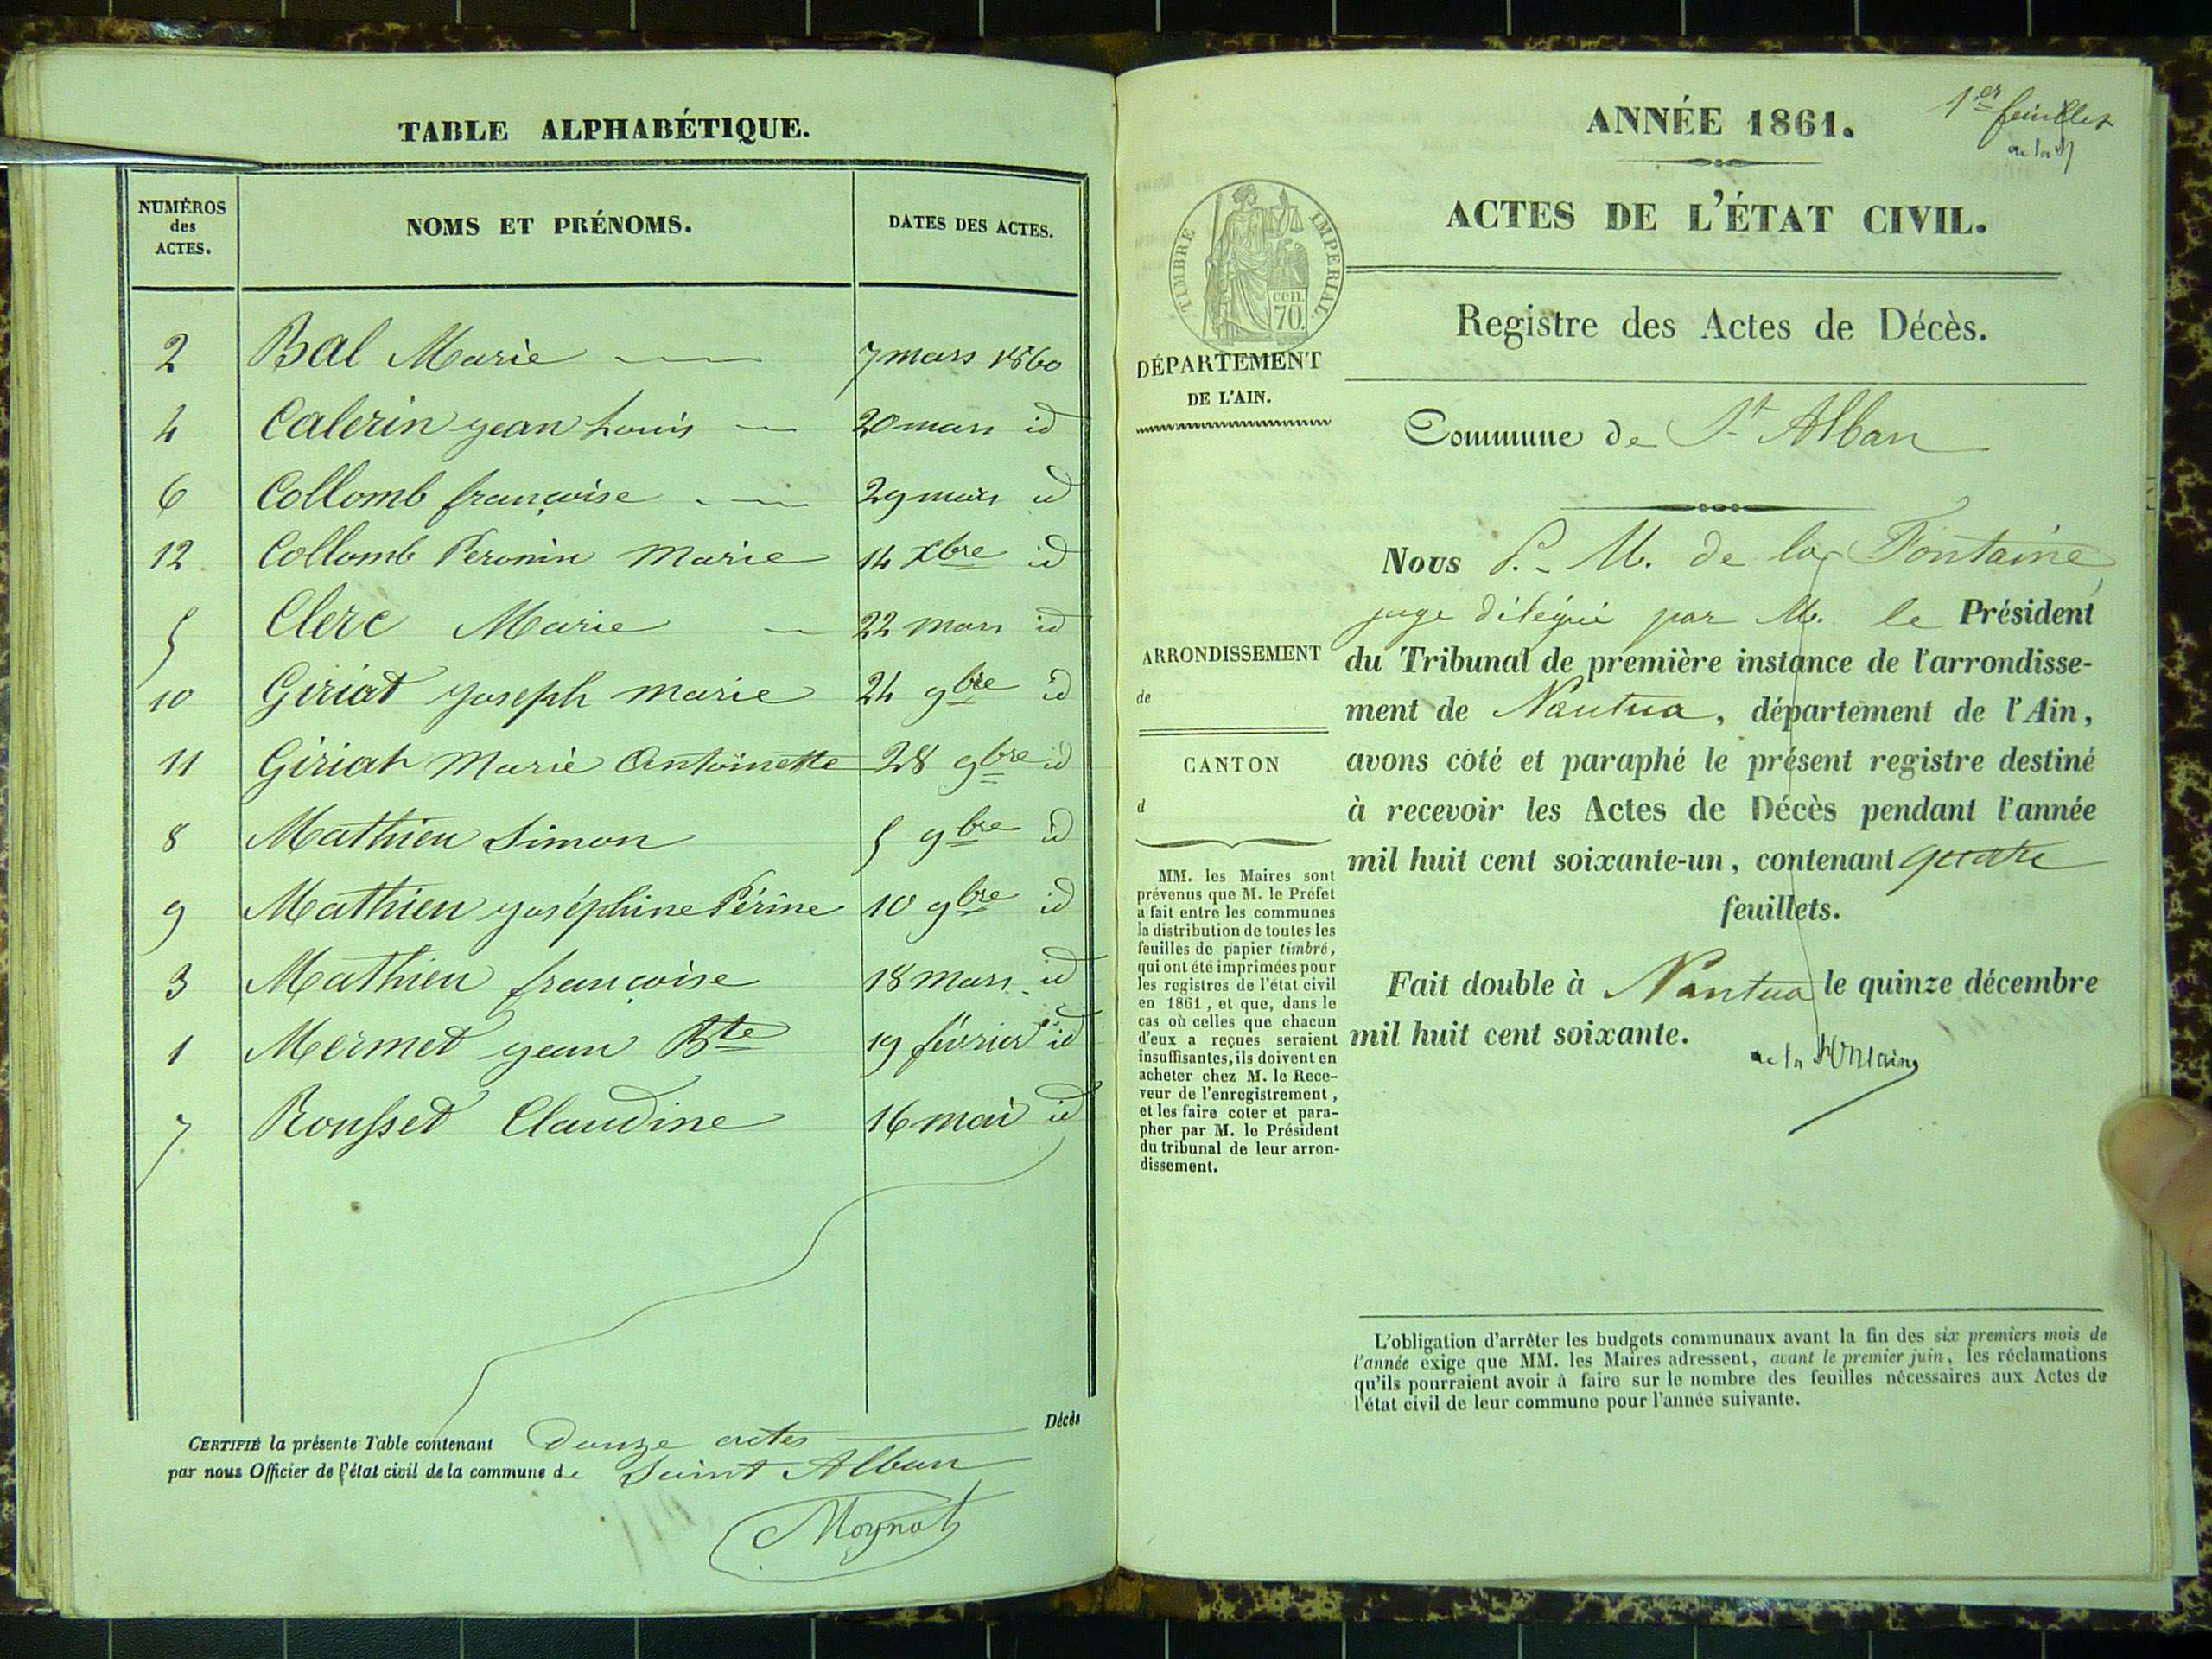 TABLE ALPHABÉTIQUE.
NUMÉROS des ACTES. NOMS ET PRÉNOMS. DATES DES ACTES.
2 Bal Marie 7 mars 1860
4 Calerin jean Louis 20 mars id
6 Collomb françoise 29 mars id
12 Collomb Peronin Marie 14 Xbre id
5 Clerc Marie 22 mars id
10 Giriat joseph marie 24 9bre id
11 Giriat Marie Antoinette 28 9bre id
8 Mathieu Simon 5 9bre id
9 Mathieu joséphine Périne 10 9bre id
3 Mathieu françoise 18 mars id
1 Mermet jean Bte 19 février id
7 Rousset Claudine 16 mai id
Décès
CERTIFIÉ la présente Table contenant Douze actes
par nous Officier de l'état civil de la commune de Saint Alban
Moynat
1er feuillet
ANNÉE 1861.
ACTES DE L'ÉTAT CIVIL.
TIMBRE IMPERIAL
cen. 70.
Registre des Actes de Décès.
DÉPARTEMENT
DE L'AIN.
Commune de St Alban
ARRONDISSEMENT
de
CANTON
d
MM. les Maires sont
prévenus que M. le Préfet
a fait entre les communes
la distribution de toutes les
feuilles de papier timbré,
qui ont été imprimées pour
les registres de l'état civil
en 1861, et que, dans le
cas où celles que chacun
d'eux a reçues seraient
insuffisantes, ils doivent en
acheter chez M. le Rece-
veur de l'enregistrement,
et les faire coter et para-
pher par M. le Président
du tribunal de leur arron-
dissement.
Nous P. M. de la Fontaine,
juge délégué par M. le Président
du Tribunal de première instance de l'arrondisse-
ment de Nantua, département de l'Ain,
avons coté et paraphé le présent registre destiné
à recevoir les Actes de Décès pendant l'année
mil huit cent soixante-un, contenant quatre
feuillets.
Fait double à Nantua le quinze décembre
mil huit cent soixante.
de la Fontaine
L'obligation d'arrêter les budgets communaux avant la fin des six premiers mois de
l'année exige que MM. les Maires adressent, avant le premier juin, les réclamations
qu'ils pourraient avoir à faire sur le nombre des feuilles nécessaires aux Actes de
l'état civil de leur commune pour l'année suivante.